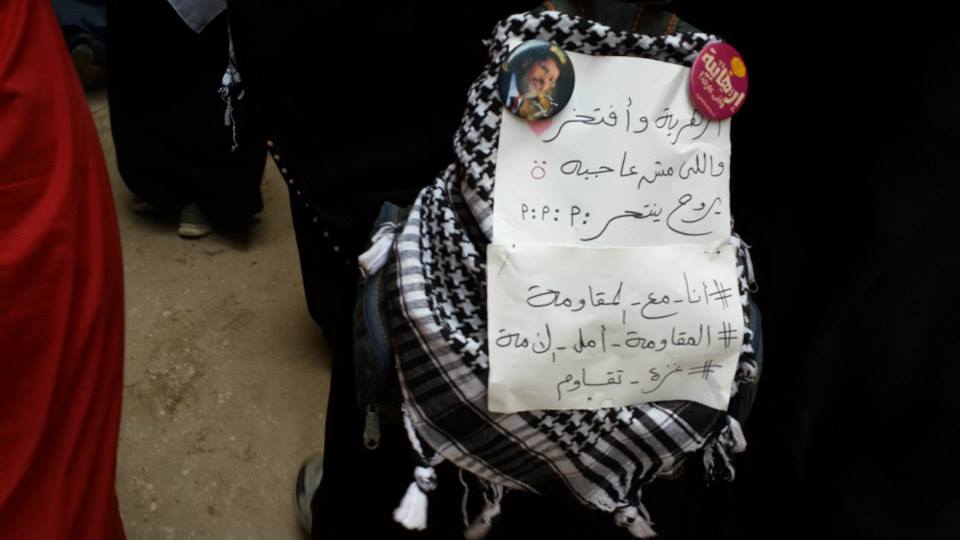 أزهرية وأفتخر
واللى مش عاجبه
يروح ينتحر :P :P :P
#أنا_مع_المقاومة
#المقاومة_أمل_الأمة
#غزة_تقاوم
إرهابية